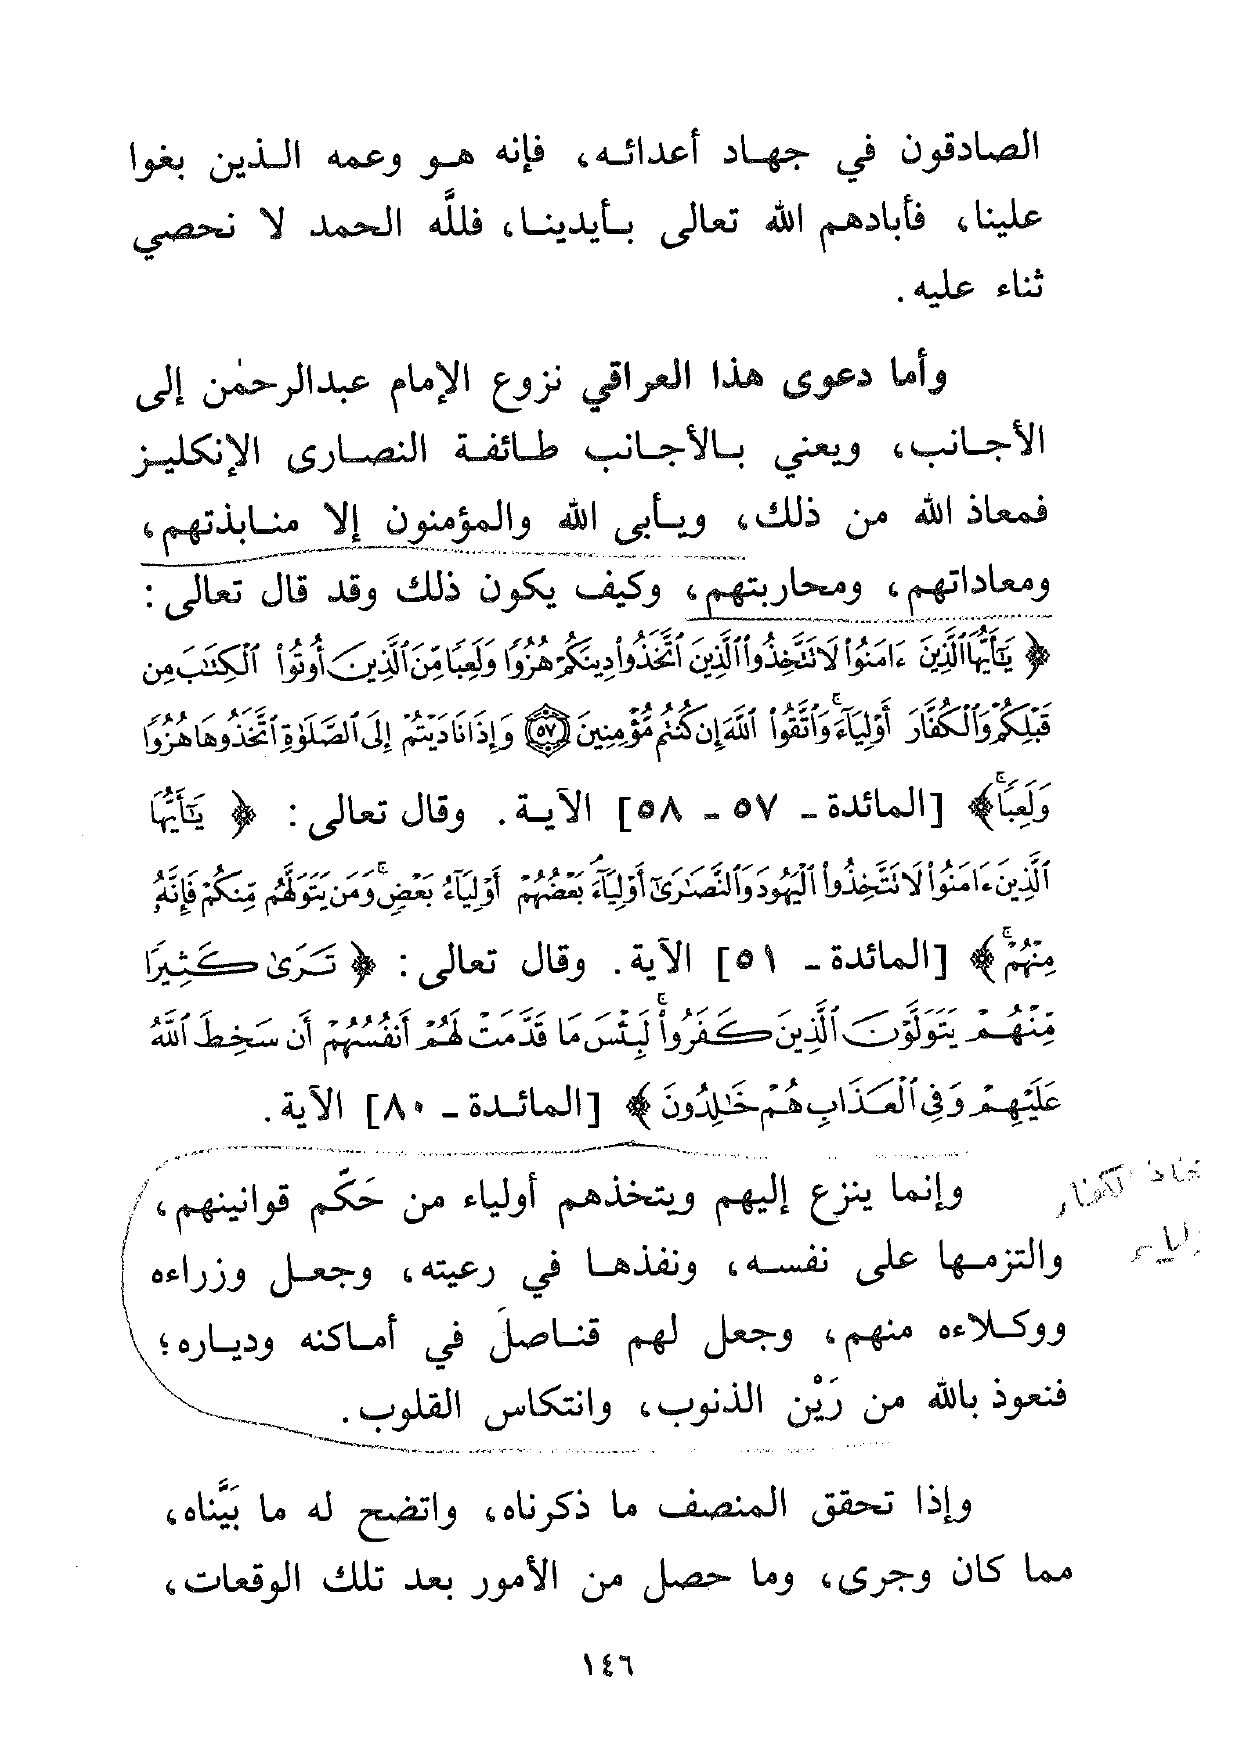 الصادقون في جهاد أعدائه، فإنه هو وعمه الذين بغوا
علينا، فأبادهم الله تعالى بأيدينا، فللَّه الحمد لا نحصي
ثناء عليه.
وأما دعوى هذا العراقي نزوع الإمام عبدالرحمٰن إلى
الأجانب، ويعني بالأجانب طائفة النصارى الإنكليز
فمعاذ الله من ذلك، ويأبى الله والمؤمنون إلا منابذتهم،
ومعاداتهم، ومحاربتهم، وكيف يكون ذلك وقد قال تعالى:
﴿ يَٰٓأَيُّهَا ٱلَّذِينَ ءَامَنُوا۟ لَا تَتَّخِذُوا۟ ٱلَّذِينَ ٱتَّخَذُوا۟ دِينَكُمْ هُزُوًا وَلَعِبًا مِّنَ ٱلَّذِينَ أُوتُوا۟ ٱلْكِتَٰبَ مِن
قَبْلِكُمْ وَٱلْكُفَّارَ أَوْلِيَآءَ ۚ وَٱتَّقُوا۟ ٱللَّهَ إِن كُنتُم مُّؤْمِنِينَ ۝٥٧ وَإِذَا نَادَيْتُمْ إِلَى ٱلصَّلَوٰةِ ٱتَّخَذُوهَا هُزُوًا
وَلَعِبًا ۚ﴾ [المائدة ـ ٥٧ ـ ٥٨] الآية. وقال تعالى: ﴿ يَٰٓأَيُّهَا
ٱلَّذِينَ ءَامَنُوا۟ لَا تَتَّخِذُوا۟ ٱلْيَهُودَ وَٱلنَّصَٰرَىٰٓ أَوْلِيَآءَ ۘ بَعْضُهُمْ أَوْلِيَآءُ بَعْضٍ ۚ وَمَن يَتَوَلَّهُم مِّنكُمْ فَإِنَّهُۥ
مِنْهُمْ ۗ﴾ [المائدة ـ ٥١] الآية. وقال تعالى: ﴿ تَرَىٰ كَثِيرًا
مِّنْهُمْ يَتَوَلَّوْنَ ٱلَّذِينَ كَفَرُوا۟ ۚ لَبِئْسَ مَا قَدَّمَتْ لَهُمْ أَنفُسُهُمْ أَن سَخِطَ ٱللَّهُ
عَلَيْهِمْ وَفِى ٱلْعَذَابِ هُمْ خَٰلِدُونَ ﴾ [المائدة ـ ٨٠] الآية.
وإنما ينزع إليهم ويتخذهم أولياء من حَكَّم قوانينهم،
والتزمها على نفسه، ونفذها في رعيته، وجعل وزراءه
ووكلاءه منهم، وجعل لهم قناصلَ في أماكنه ودياره؛
فنعوذ بالله من رَيْن الذنوب، وانتكاس القلوب.
وإذا تحقق المنصف ما ذكرناه، واتضح له ما بَيَّناه،
مما كان وجرى، وما حصل من الأمور بعد تلك الوقعات،
١٤٦